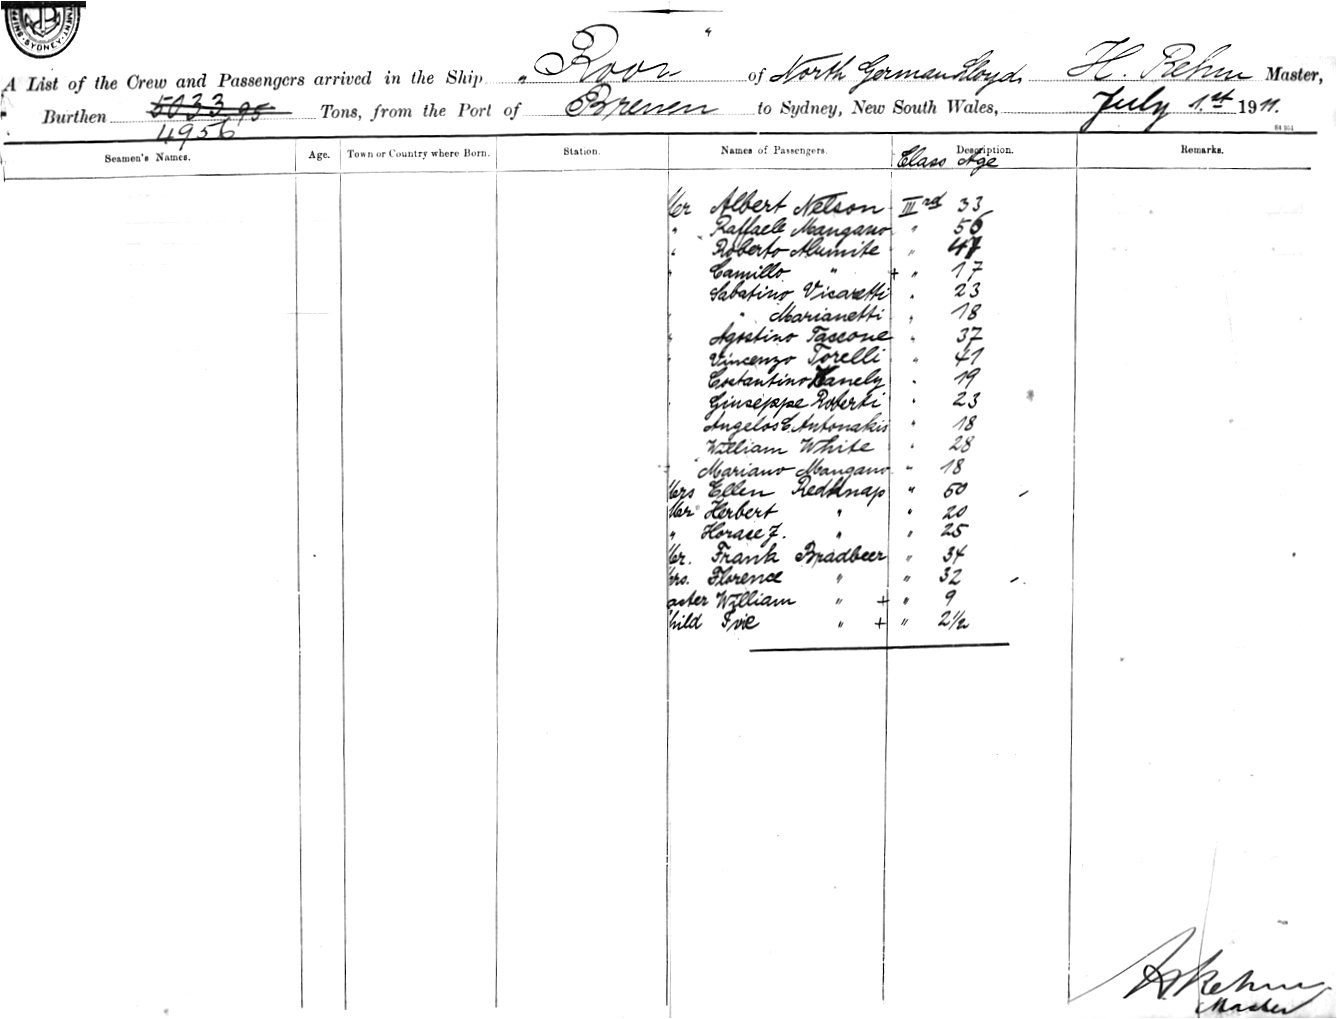 SYDNEY
A List of the Crew and Passengers arrived in the Ship " Roon " of North German Lloyd H. Rehm Master,
Burthen 5033.95 Tons, from the Port of Bremen to Sydney, New South Wales, July 1.st 1911.
4956
Seamen's Names. Age. Town or Country where Born. Station. Names of Passengers. Description. Remarks.
Class Age
Mr Albert Nelson IIIrd 33
" Raffaele Mangano " 56
" Roberto Alumite " 47
" Camillo " + " 17
Sabatino Vicaretti " 23
" Marianetti " 18
Agostino Taccone " 37
Vincenzo Torelli " 41
Costantino Kanely " 19
Giuseppe Roberti " 23
Angelos C. Antonakis " 18
William White " 28
Mariano Mangano " 18
Mrs Ellen Redknap " 50
Mr Herbert " " 20
" Horace J. " " 25
Mr. Frank Bradbeer " 34
Mrs. Florence " " 32
aster William " + " 9
hild Ivie " + " 2 1/2
H. Rehm
Master